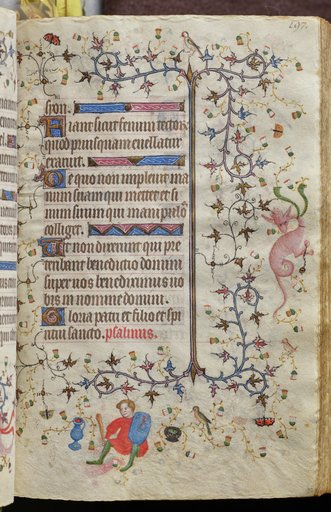 197.
syon.
Fiant sicut fenum tector
quod priusquam evellatur
exaruit.
De quo non implevit ma
num suam qui metet et si
num suum qui manipulos
colliget.
Et non dixerunt qui pre
teribant benedictio domini
super vos benediximus vo
bis in nomine domini.
Gloria patri et filio et spi
ritui sancto. psalmus.